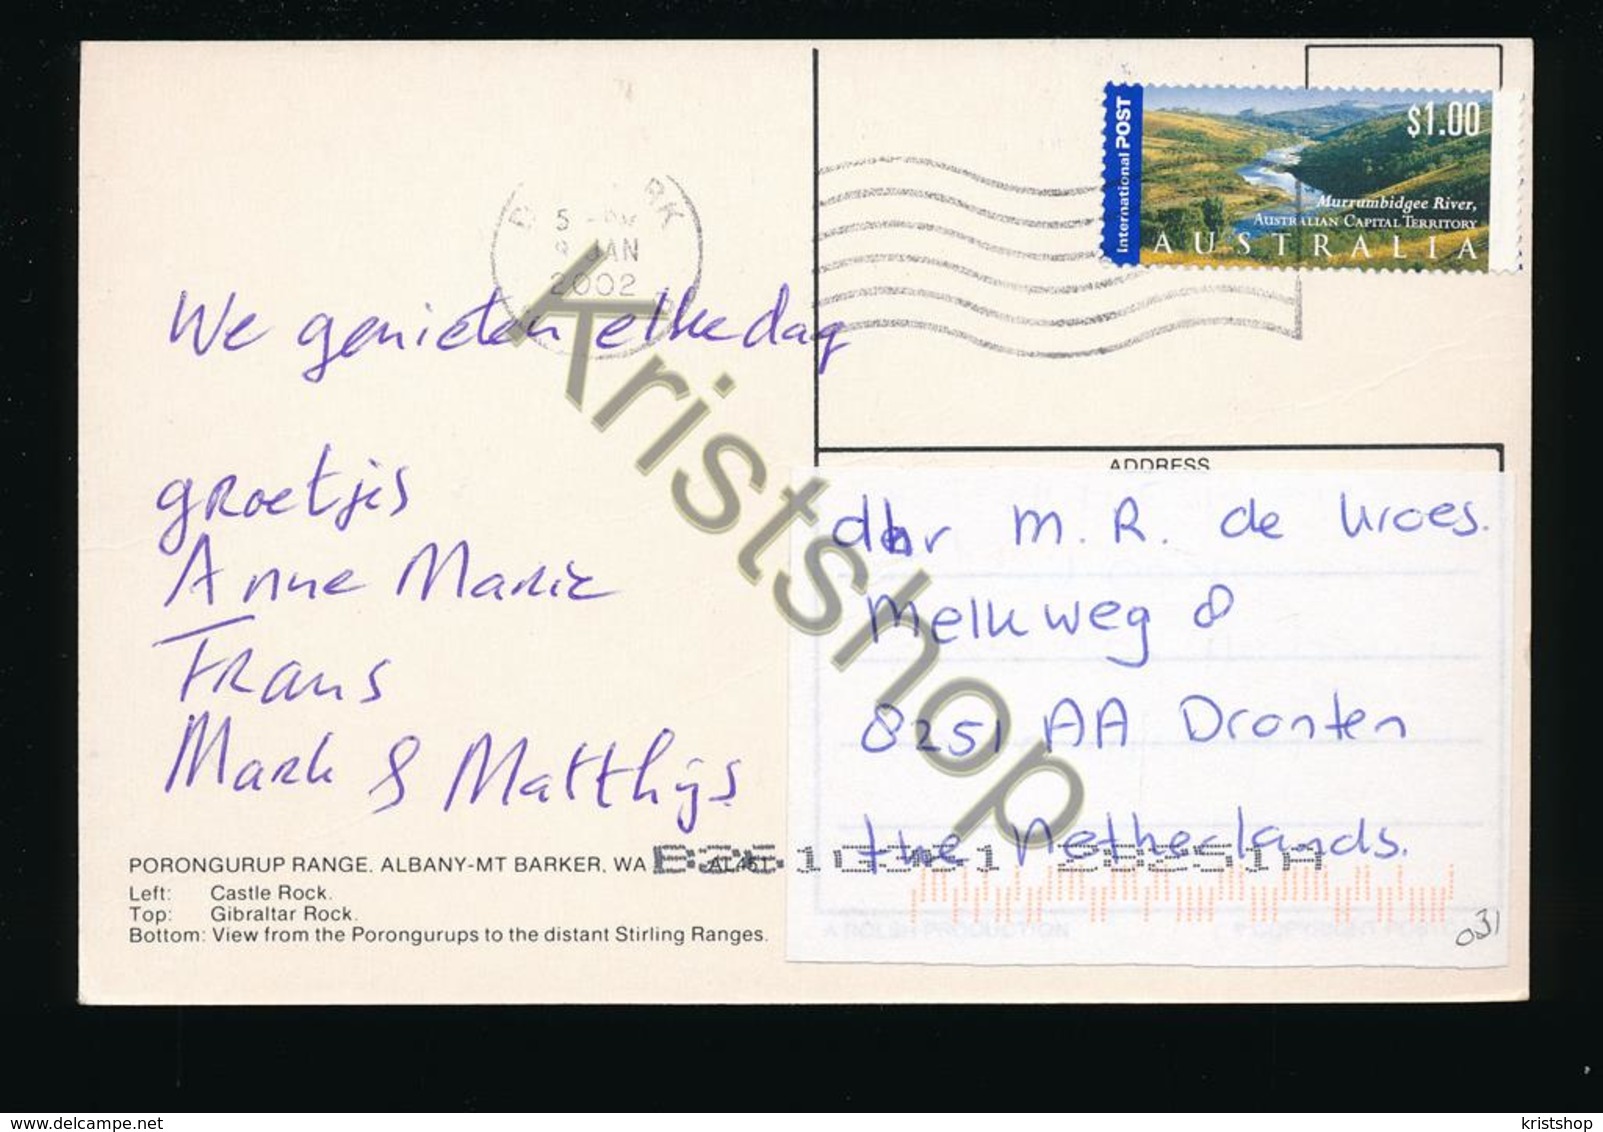 International POST
$1.00
Murrumbidgee River,
AUSTRALIAN CAPITAL TERRITORY
AUSTRALIA
9 JAN
2002
We genieten elke dag
groetjes
Anne Marie
Frans
Mark & Matthijs
PORONGURUP RANGE. ALBANY-MT BARKER, WA
Left: Castle Rock.
Top: Gibraltar Rock.
Bottom: View from the Porongurups to the distant Stirling Ranges.
ADDRESS
dhr M. R. de Vroes.
Melkweg 8
8251 AA Dronten
the Netherlands.
031
Kristshop
delcampe.net
kristshop